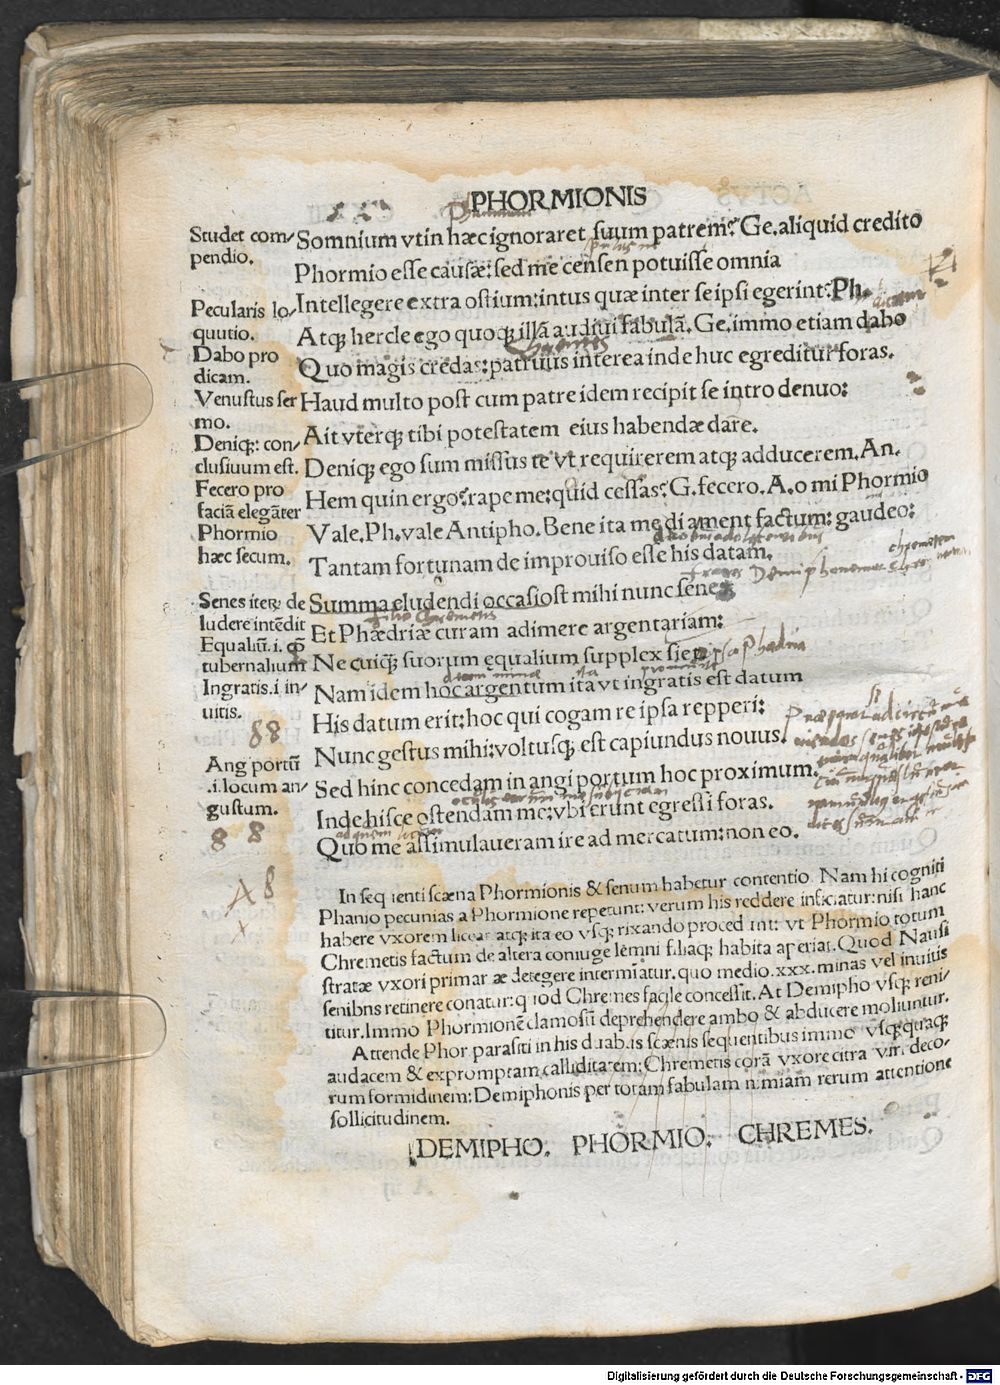 PHORMIONIS
Studet com-
pendio.
Pecularis lo-
quutio.
Dabo pro
dicam.
Venustus ser
mo.
Deniq;: con-
clusiuum est.
Fecero pro
faciā elegāter
Phormio
hæc secum.
Senes iteꝝ de
ludere intēdit
Equaliū.i. cō
tubernalium
Ingratis.i in-
uitis.
88
Ang portū
.i.locum an-
gustum.
8 8
A8
x
Somnium vtin hæc ignoraret suum patrem? Ge. aliquid credito
Phormio esse causæ: sed me censen potuisse omnia
Intellegere extra ostium: intus quæ inter se ipsi egerint: Ph.
Atq; hercle ego quoq; illā audiui fabulā. Ge. immo etiam dabo
Quo magis credas: patruus interea inde huc egreditur foras.
Haud multo post cum patre idem recipit se intro denuo:
Ait vterq; tibi potestatem eius habendæ dare.
Deniq; ego sum missus te vt requirerem atq; adducerem. An.
Hem quin ergo? rape me: quid cessas? G. fecero. A. o mi Phormio
Vale. Ph. vale Antipho. Bene ita me di ament factum: gaudeo:
Tantam fortunam de improuiso esse his datam.
Summa eludendi occasiost mihi nunc senes
filio Chremetis
Et Phædriæ curam adimere argentariam:
Ne cuiq; suorum equalium supplex siet
Nam idem hoc argentum ita vt ingratis est datum
His datum erit: hoc qui cogam re ipsa repperi:
Nunc gestus mihi: voltusq; est capiundus nouus.
Sed hinc concedam in angi portum hoc proximum.
Inde hisce ostendam me: vbi erunt egressi foras.
Quo me assimulaueram ire ad mercatum: non eo.
In sequenti scæna Phormionis & senum habetur contentio. Nam hi cogniti
Phanio pecunias a Phormione repetunt: verum his reddere inficiatur: nisi hanc
habere vxorem liceat atq; ita eo vsq; rixando proced int: vt Phormio totum
Chremetis factum de altera coniuge lemni filiaq; habita aperiat. Quod Nausi
stratæ vxori primar æ detegere intermīatur. quo medio .xxx. minas vel inuitis
senibns retinere conatur: quod Chremes facile concessit. At Demipho vsq; reni-
titur. Immo Phormionē clamosū deprehendere ambo & abducere moliuntur.
Attende Phor. parasiti in his duabus scænis sequentibus immo vsq;quaq;
audacem & expromptam calliditatem: Chremetis corā vxore citra viri deco-
rum formidinem: Demiphonis per totam fabulam nimiam rerum attentione
sollicitudinem.
DEMIPHO. PHORMIO. CHREMES.
Digitalisierung gefördert durch die Deutsche Forschungsgemeinschaft - DFG